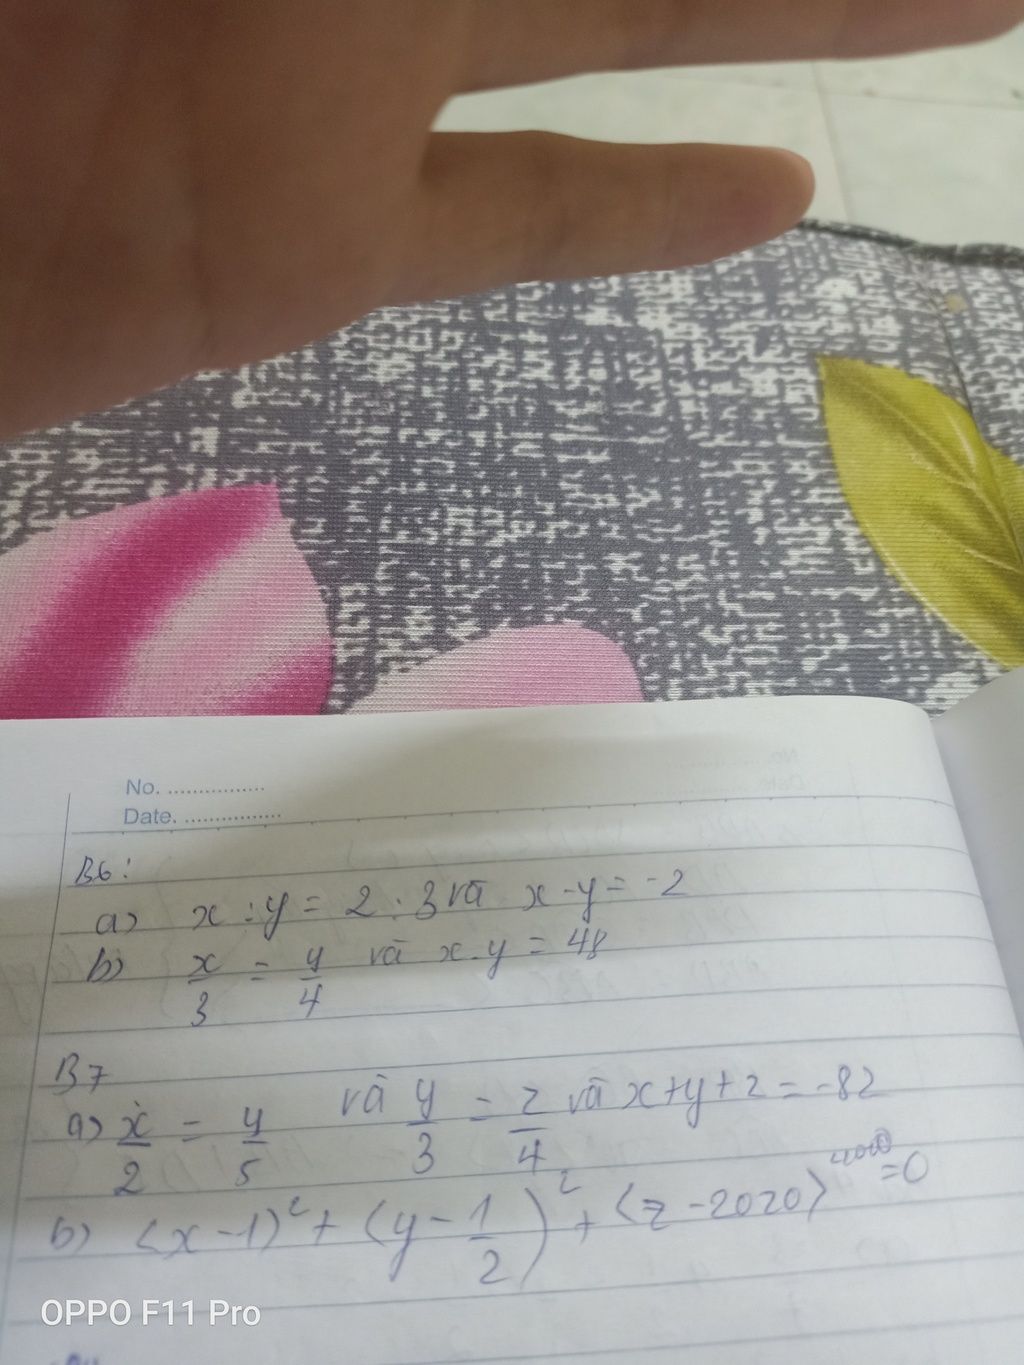 No. ................
Date. ................
B6:
a) x : y = 2 : 3 và x - y = -2
b) x/3 = y/4 và x.y = 48
B7
a) x/2 = y/5 và y/3 = z/4 và x+y+z = -82
b) (x-1)² + (y - 1/2)² + (z - 2020) = 0
OPPO F11 Pro